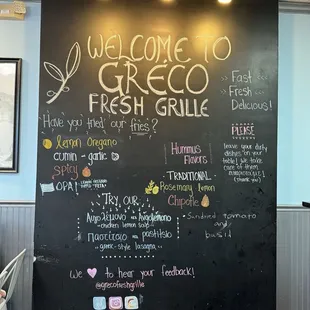 WELCOME TO
GRECO
FRESH GRILLE
Fast
Fresh
Delicious!
"Have you tried" our fries?
lemon oregano
cumin - garlic
spicy
OPA!
PLEASE
leave your dirty
dishes "on your
table! we take
care of them
(thank you)
Hummus
Flavors
-TRADITIONAL-
Rosemary lemon
Chipotle
Sundried tomato
and
basil
TRY OUR
Avgolemono
-chicken lemon soup-
παστίτσιο = pastitsio
-greek-style lasagna-
We to hear your feedback!
@grecofreshgrille